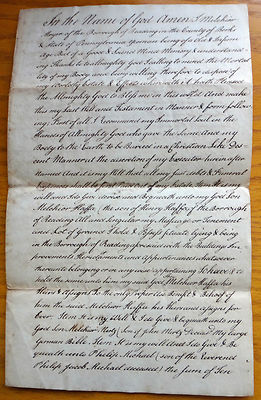 In the Name of God Amen I Melchior
of the Borough of Reading in the County of Berks
& State of Pennsylvania Yeoman being of a and Infirm
Age but of Good & Sound Mind Memory & understanding
Thanks to Almighty God Calling to mind the Mortality
of my Body and being willing Therefore to dispose of
my Worldly Estate & Effects wherewith it hath Pleased
the Almighty God to bless me in this world And make
this my last Will and Testament in Manner & form following
First of all I Commend my Immortal Soul into the
Hands of Almighty God who gave the Same And my
Body to the Earth to be Buried in a Christian Like Decent
Manner at the discretion of my Executor herein after
Named And it is my Will that all my just debts & Funeral
Expenses shall be first Paid out of my Estate Item It is my
will and I do Give devise and Bequeath unto my God Son
Melchior Haffa, the son of Henry Haffa of the Borough
of Reading All and Singular my Messuage or Tenement
and Lot of Ground I hold & Possess situate lying & being
in the Borough of Reading aforesaid with the Buildings Improvements
Hereditaments and Appurtenances whatsoever
thereunto belonging or in any wise appertaining To have & to
hold the same unto him my said God Melchior Haffa his
Heirs & Assigns To the only Proper Use Benefit & Behoof of
him the said Melchior Haffa his Heirs and Assigns for
Ever Item It is my Will & I do Give & bequeath unto my
God Son Melchior Mertz, Son of John Mertz Deceased My large
German Bible Item It is my will And I do Give & Bequeath
unto Philip Michael (son of the Reverend
Philip Jacob Michael deceased) the sum of Ten